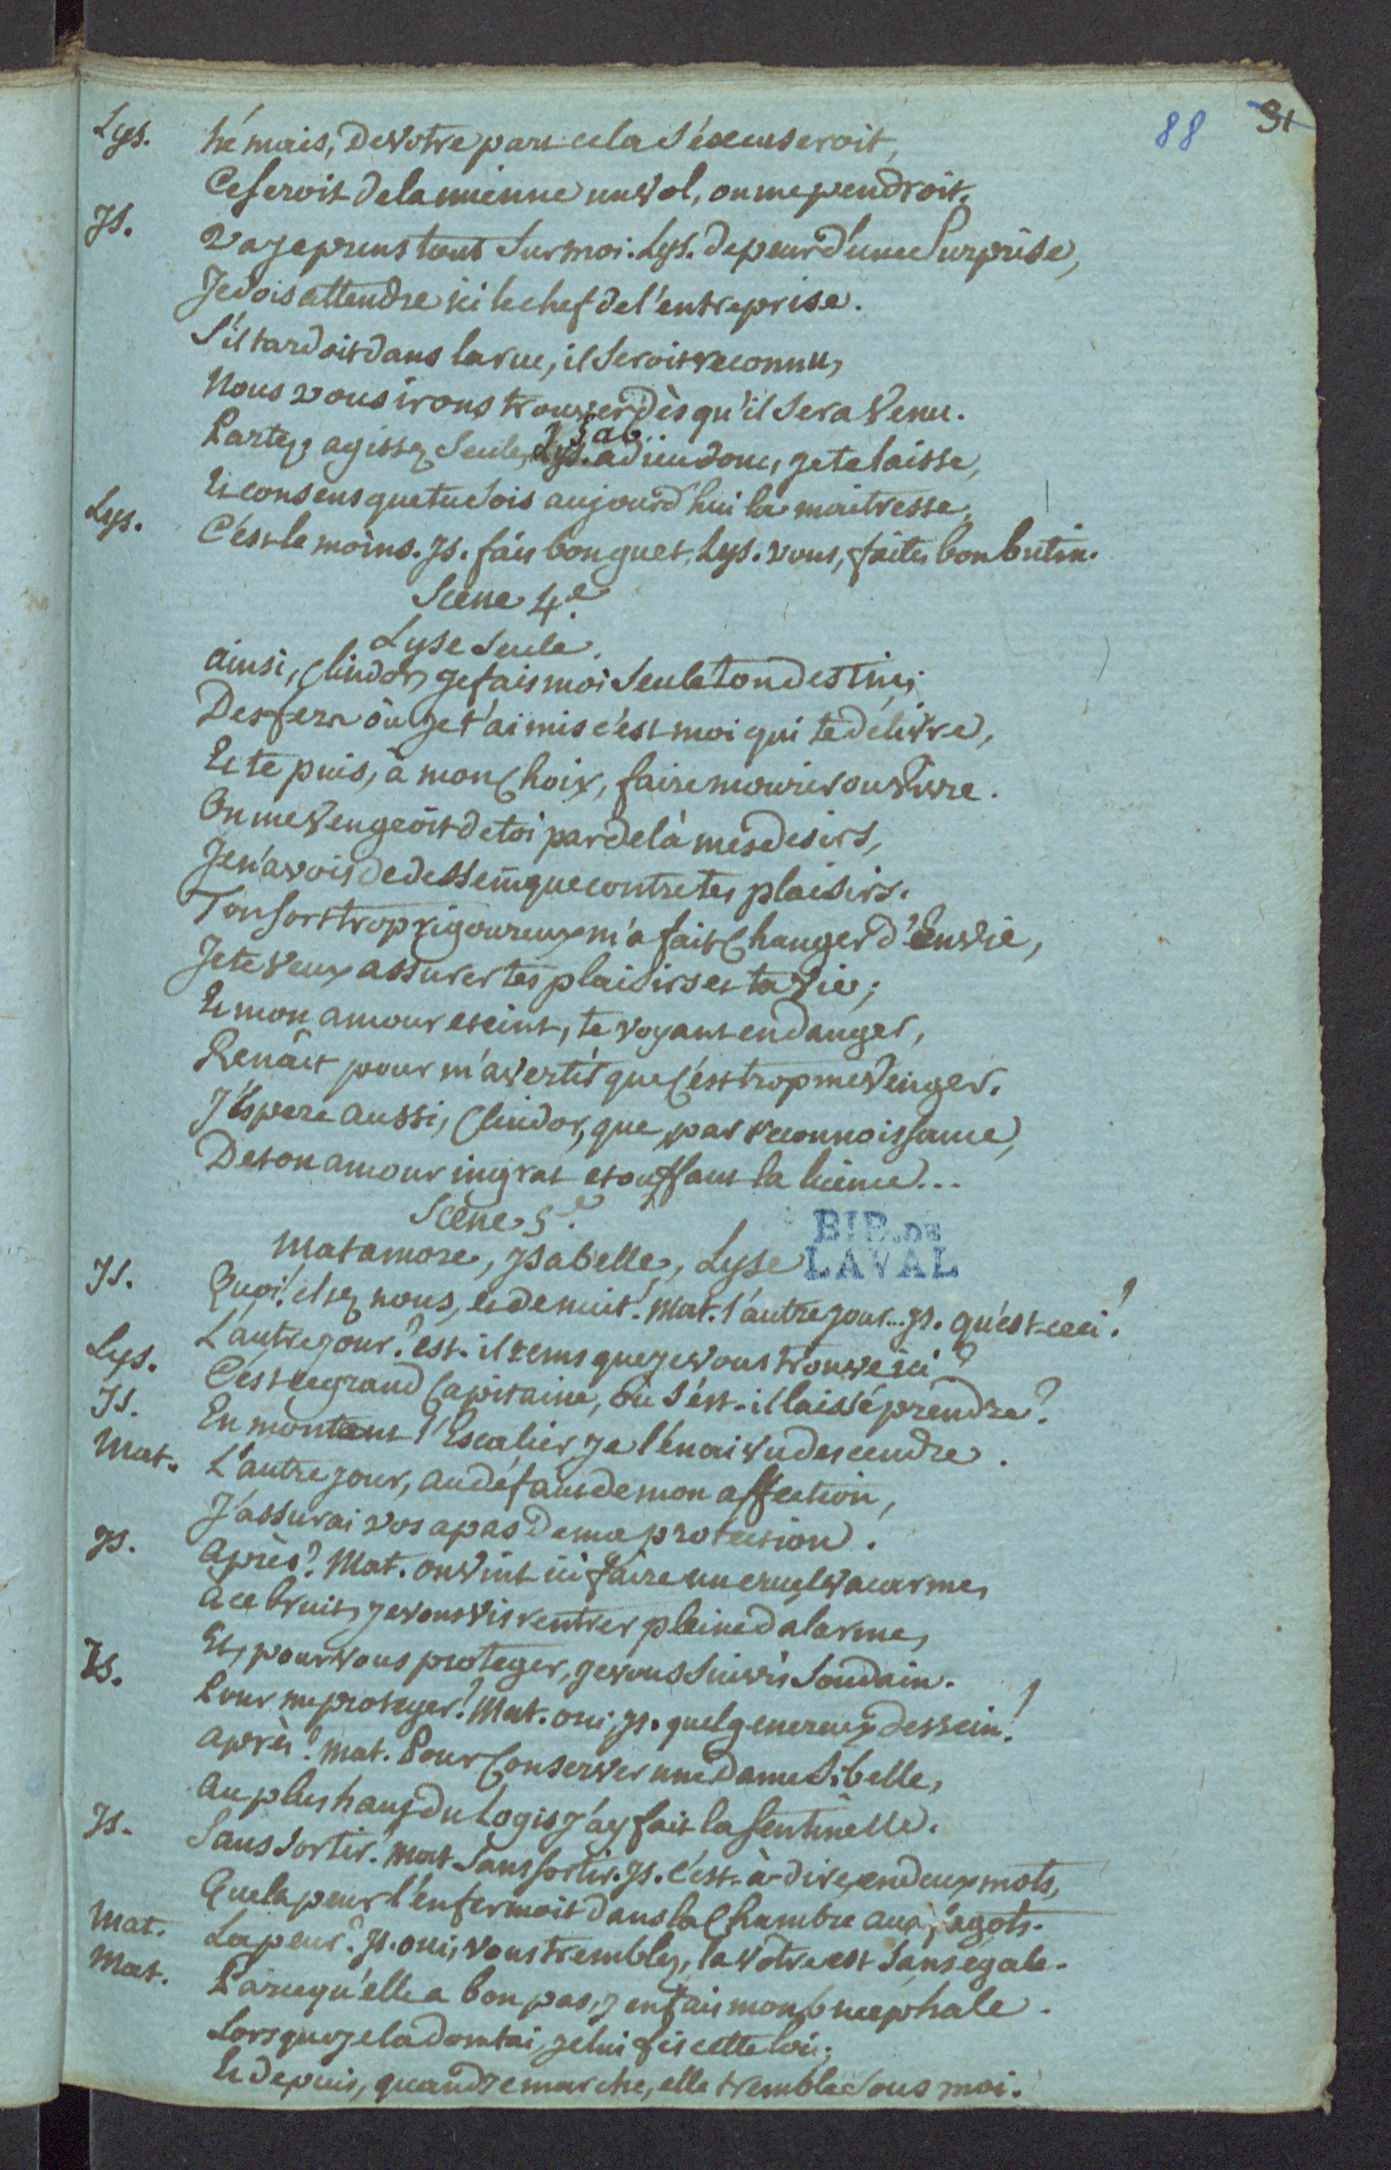 88 31
Lys. hé mais, de votre part cela s'éxcuseroit,
Ce seroit de la mienne un vol, on me pendroit.
Js. va je prens tout sur moi. Lys. de peur d'une surprise,
Je dois attendre ici le chef de l'entreprise.
S'il tardoit dans la rue, il seroit reconnu,
Nous vous irons trouver dès qu'il sera venu.
Isab..
Partez, agissez seule, Lys. adieu donc, je te laisse,
Et consens que tu sois aujourd'hui la maitresse,
Lys. C'est le moins. Js. fais bon guet, Lys. vous, faites bon butin.
Scene 4.e
Lyse seule.
ainsi, Clindor, je fais moi seule ton destin;
Des fers où je t'ai mis c'est moi qui te délivre,
Et te puis, à mon Choix, faire mourir ou vivre.
On me vengeoit de toi par delà mes desirs,
Je n'avois de dessein que contre tes plaisirs.
Ton sort trop rigoureux m'a fait Changer d'Envie,
Je te veux assurer tes plaisirs et ta vie;
Et mon amour eteint, te voyant en danger,
Renâit pour m'avertir que c'est trop me venger.
J'éspere aussi, Clindor, que, par reconnoissance,
De ton amour ingrat etouffant la licence...
Scene 5.e
Matamore, Jsabelle, Lyse
BIB. DE
LAVAL
Js. Quoi! chez nous, et de nuit! Mat. l'autre jour... Js. qu'est-ceci?
L'autre jour? est-il tems que je vous trouve ici?
Lys. C'est ce grand Capitaine, où s'est-il laissé prendre?
Js. En montant l'Escalier, je l'en ai vu descendre.
Mat. L'autre jour, au défaut de mon affection,
J'assurai vos apas de ma protection.
Js. Après? Mat. on vint ici faire un cruel vacarme,
a ce bruit, je vous vis rentrer pleine d'alarme,
Et, pour vous proteger, je vous suivis soudain.
Js. Pour me proteger? Mat. oui, Js. quel genereux dessein!
après? Mat. Pour Conserver une Dame si belle,
au plus haut du Logis j'ay fait la sentinelle.
Js. Sans sortir? Mat. sans sortir. Js. c'est-à-dire, en deux mots,
Que la peur l'enfermoit dans la Chambre aux fagots.
Mat. La peur? Js. oui, vous tremblez, la votre est sans égale.
Mat. Parce qu'elle a bon pas, j'en fais mon bucephale.
Lorsque je la domtai, je lui fis cette loi;
Et depuis, quand je marche, elle tremble sous moi.